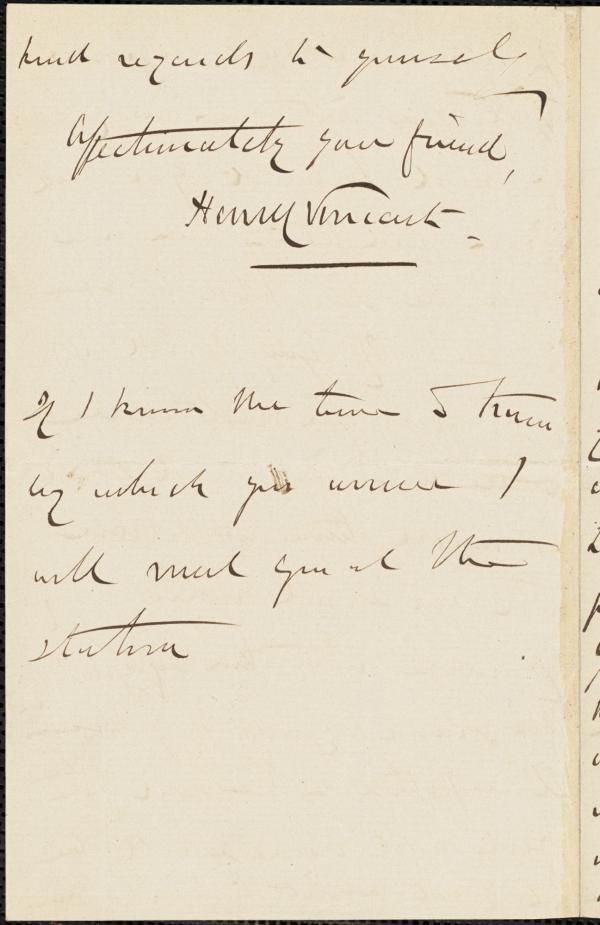 kind regards to yourself
Affectionately your friend,
Henry Vincent.
If I know the time & train
by which you arrive I
will meet you at the
station